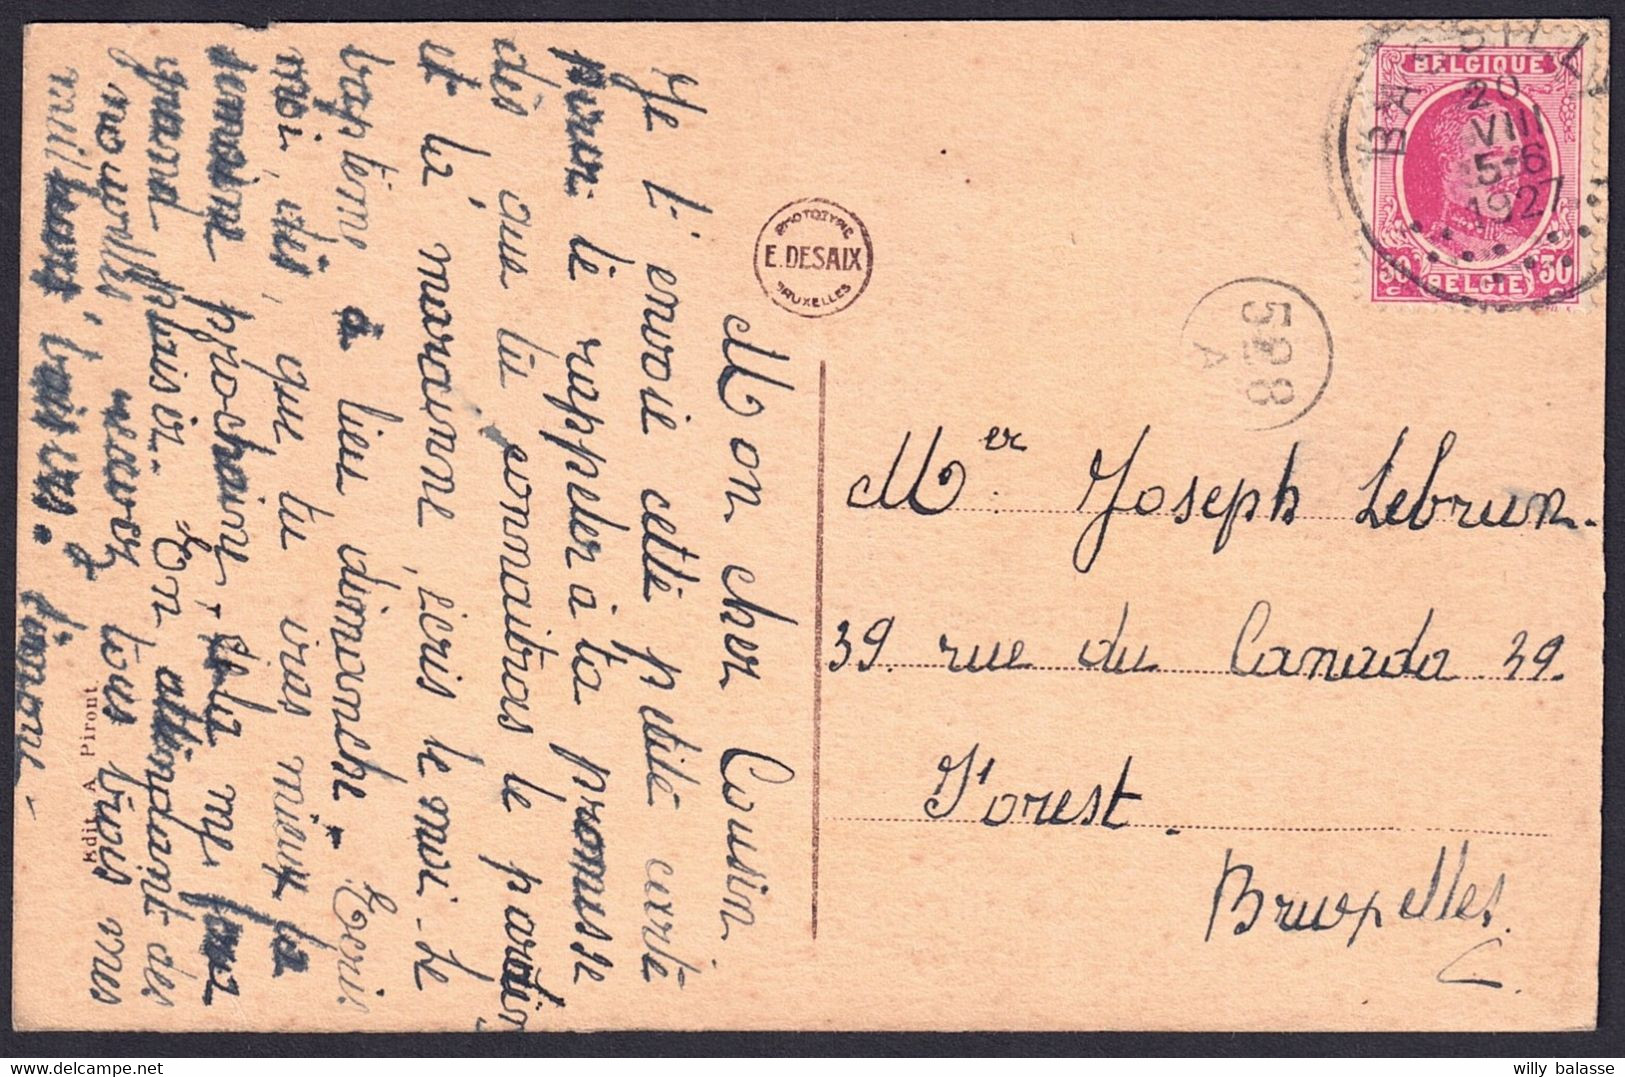 Mon cher Cousin
Je t'envoie cette petite carte
pour te rappeler à ta promesse
dès que tu connaitras le parrin
et la marainne, écris le moi. Le
baptême a lieu dimanche. Écris
moi, dis, que tu vras mieux la
semaine prochaine, me fera
grand plaisir. En attendant des
nouvelle, recevez tous trois mes
meilleurs baisers.
Simone
Edit. A Piront
PHOTOTYPIE
E. DESAIX
BRUXELLES
BELGIQUE
20
VIII
5-6
1927
30 c BELGIE 30
528
A
Mr. Joseph Lebrun.
39. rue du Canada 39.
Forest.
Bruxelles
willy balasse